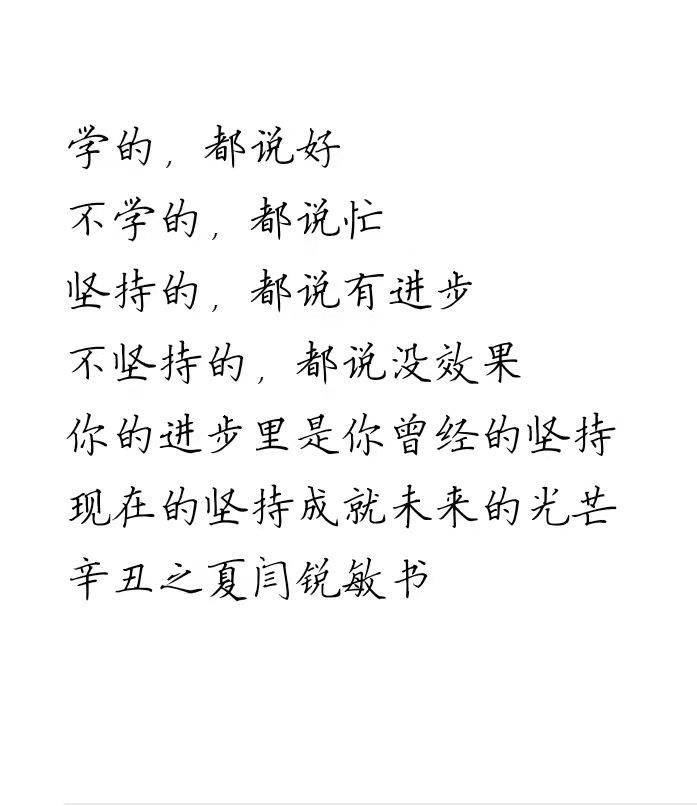 学的，都说好
不学的，都说忙
坚持的，都说有进步
不坚持的，都说没效果
你的进步里是你曾经的坚持
现在的坚持成就未来的光芒
辛丑之夏闫锐敏书